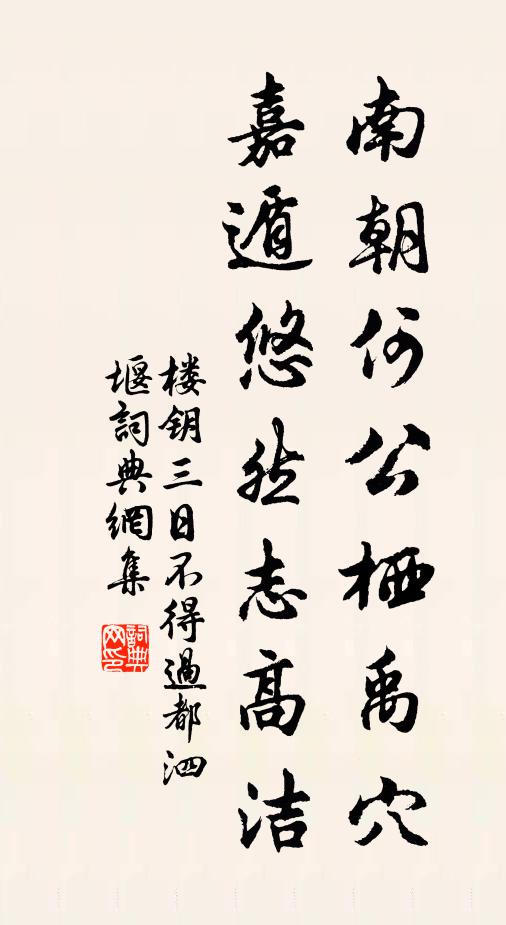 南朝何公栖禹穴
嘉遁悠然志高洁
楼钥三日不得過都泗
堰詞典網集
詞典網印